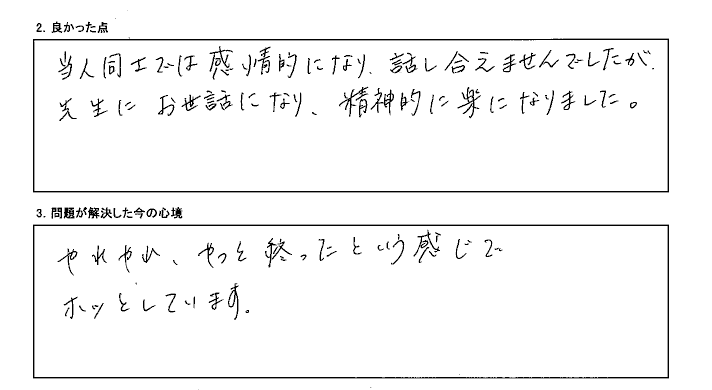 2. 良かった点
当人同士では感情的になり、話し合えませんでしたが、
先生にお世話になり、精神的に楽になりました。
3. 問題が解決した今の心境
やれやれ、やっと終ったという感じで
ホッとしています。